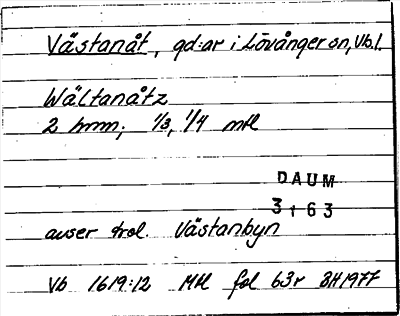 Västanåt, gd:ar i Lövånger sn, Vb.l.
Wältanåtz
2 hmn; 1/3, 1/4 mtl
DAUM
3163
avser trol. Västanbyn
Vb 1619:12 Mtl fol 63r BH1977